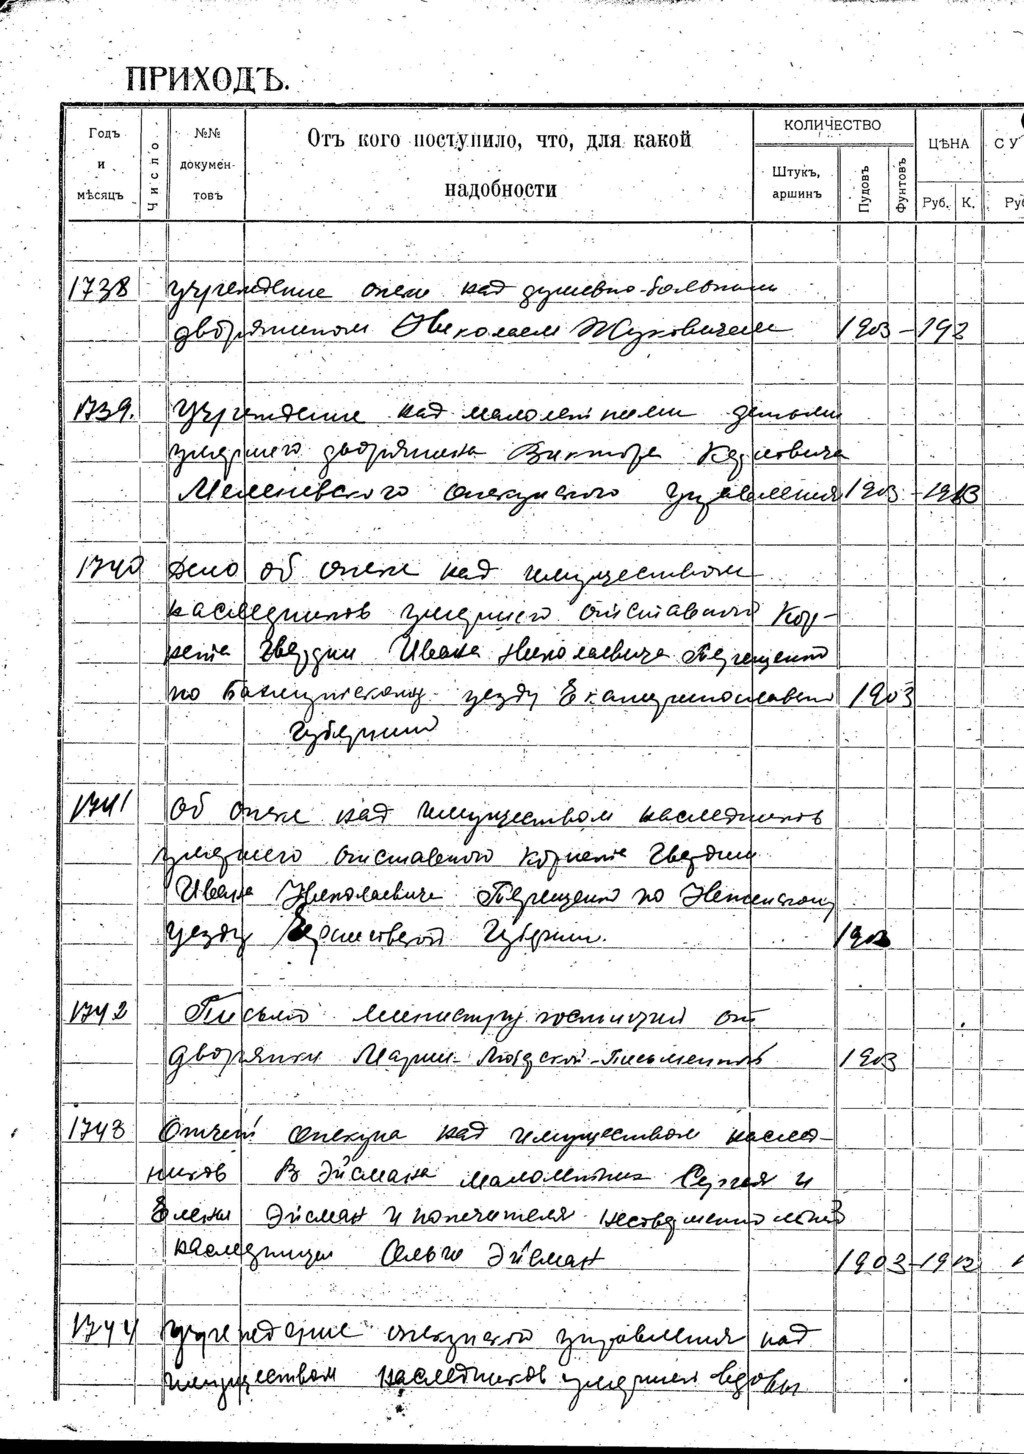 ПРИХОДЪ.
Годъ и мѣсяцъ
Число
№№ документовъ
Отъ кого поступило, что, для какой надобности
КОЛИЧЕСТВО
Штукъ, аршинъ
Пудовъ
Фунтовъ
ЦѢНА
Руб. К.
СУ
Ру
1738 учреждение опеки над душевно-больным
дворянином Николаем Жуковичем 1903-192
1739. Учреждение над малолетними детьми
умершего дворянина Виктора
опекунского управления 1903-1913
1740 Дело об опеке над имуществом
наследников умершего отставного Кор-
нета Гвардии Ивана Николаевича Терещенко
по Бахмутскому уезду Екатеринославской 1903
Губернии
1741 Об опеке над имуществом наследников
умершего отставного корнета Гвардии
Ивана Николаевича Терещенко по Неженскому
уезду Черниговской Губернии. 1903
1742 Письмо министру юстиции от
дворянки Марии 1903
1743 Отчет опекуна над имуществом наслед-
ников В Эйсмана малолетних Сергея и
Елены Эйсман и попечителя несовершеннолетней
наследницы Ольги Эйсман 1903-1912
1744 Учреждение опекунского управления над
имуществом наследников умершей вдовы